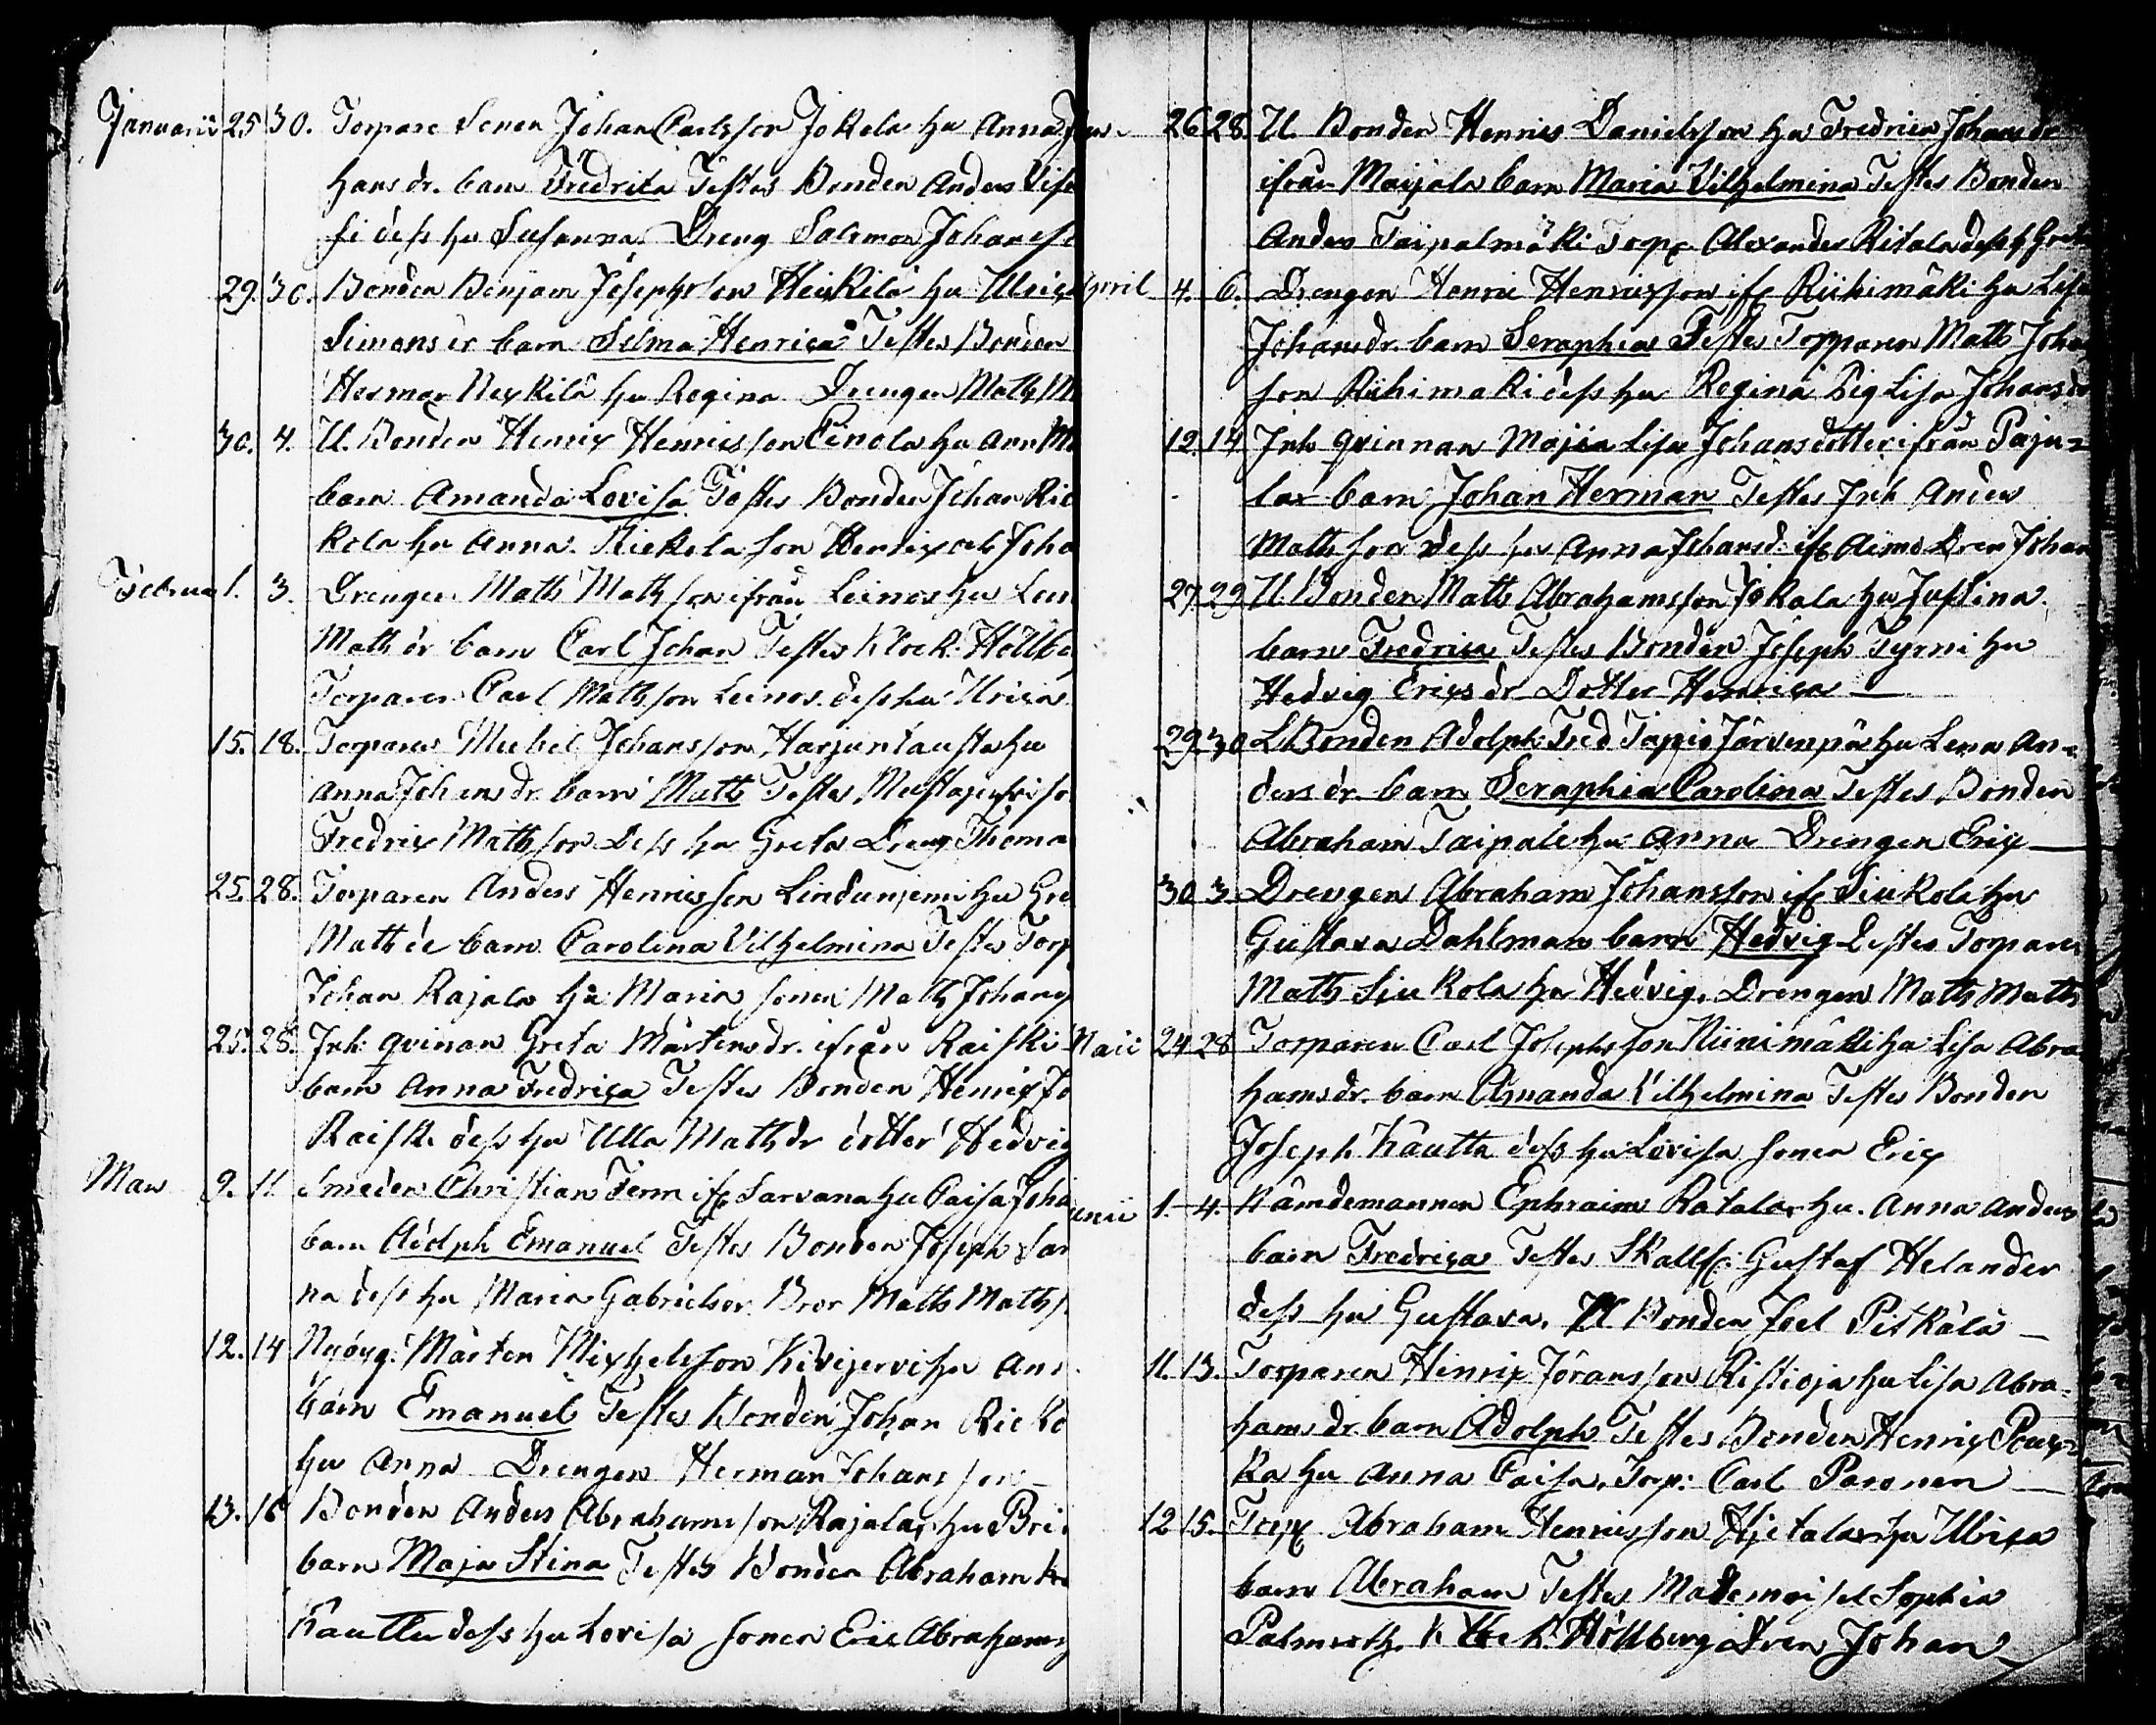 Januarii 25 30. Torpare Sonen Johan Carlsson Jokela hu Anna
hans dr. barn Fredrika Testes Bonden Anders
si dess hu Susanna. Dreng Salomon Johans
29. 30. Bonden Benjam Josephsson Heikilä hu Ulrica
Simons dr barn Selma Henrica Testes Bonden
Herman Heykilä hu Regina Drengen Math
30. 4. U. Bonden Henrix Henricsson Einola hu Ann
barn Amanda Lovisa Testes Bonden Johan Rie
kola hu Anna. Riekola son Henrix och Joha
Februa 1. 3. Drengen Math Mathsson ifrån Leinos hu Len
Maths dr barn Carl Johan Testes Klock: Hollbe
Torparen Carl Mathsson Leinos dess hu Ulrica
15. 18. Torparen Michel Johansson Harjuntausta hu
Anna Johans dr. barn Math Testes
Fredrix Mathsson Dess hu Greta Dreng Thoma
25. 28. Torparen Anders Henricsson Lindunjemi hu Gre
Maths dr barn Carolina Vilhelmina Testes Torp
Johan Rajala hu Maria sonen Math Johans
25. 28. Inh: qvinan Greta Mårtens dr. ifrån Raiski
barn Anna Fredrica Testes Bonden Henrix Jo
Raiski dess hu Ulla Maths dr dotter Hedvig
Mars 9. 11. Smeden Christian Ferm ifr Sarvana hu Caisa Joha
barn Adolph Emanuel Testes Bonden Joseph Sar
na dess hu Maria Gabrielsdr. Bror Maths Maths
12. 14 Nybyg: Mårten Mixhelsson Kivijervi hu Ann
barn Emanuel Testes Bonden Johan Rieko
hu Anna Drengen Herman Johansson
13. 16 Bonden Anders Abrahamsson Rajala hu Bri
barn Maja Stina Testes Bonden Abraham
Kautta dess hu Lovisa sonen Eric Abrahams
26 28 U. Bonden Henric Danielsson hu Fredrica Johans dr
ifrån Maijala barn Maria Vilhelmina Testes Bonden
Anders Taipalmäki Torp Alexander Ritala dess h Greta
April 4. 6. Drengen Henric Henricsson ifr Riihimäki hu Lisa
Johansdr. barn Seraphia Testes Torparen Math Johan
son Riihimäki dess hu Regina Pig Lisa Johans dr
12. 14 Inh qvinnan Majia Lisa Johansdotter ifrån Paju=
la barn Johan Herman Testes Inh Anders
Mathsson dess hu Anna Johansd. ifr Aimo Dren Johan
27 29 U. Bonden Math Abrahamsson Jokala hu Justina
barn Fredrica Testes Bonden Joseph Tyrni hu
Hedvig Erics dr Dotter Henrica
29 30 L. Bonden Adolph Fred Tapio Järvenpä hu Lena An=
ders dr. barn Seraphia Carolina Testes Bonden
Abraham Taipale hu Anna Drengen Erix
30 3 Drengen Abraham Johansson ifr Siukola hu
Gustava Dahlman barn Hedvig Testes Torparen
Math Siukola hu Hedvig. Drengen Maths Maths
Maii 24 28 Torparen Carl Josephsson Niinimäki hu Lisa Abra
hamsdr. barn Amanda Vilhelmina Testes Bonden
Joseph Kautta dess hu Lovisa sonen Erix
Junii 1. 4. Nämdemannen Ephraim Ratala hu. Anna Anders
barn Fredrica Testes Skallf: Gustaf Helander
dess hu Gustava. U Bonden Joel Pitkälä
11. 13. Torparen Henrix Jöransson Ristioja hu Lisa Abra=
hams dr. barn Adolph Testes Bonden Henrix Poux=
ka hu Anna Caisa. Torp: Carl Paronen
12 15. Torp Abraham Henricsson Hietala hu Ulrica
barn Abraham Testes Mademoisel Sophia
Palmroth, Klock Hollberg Dren Johan